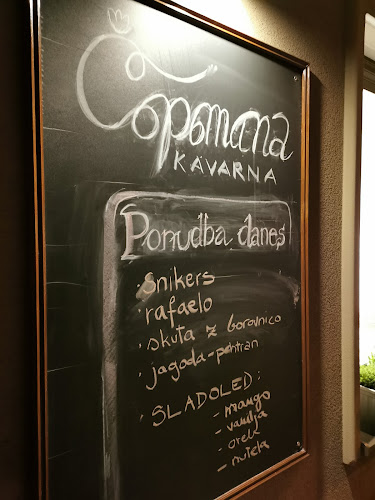 Copomana
KAVARNA
Ponudba danes
· Snikers
· rafaelo
· skuta z borovnico
· jagoda-pehtran
· SLADOLED:
- mango
- vanilja
- oreh
- nutela